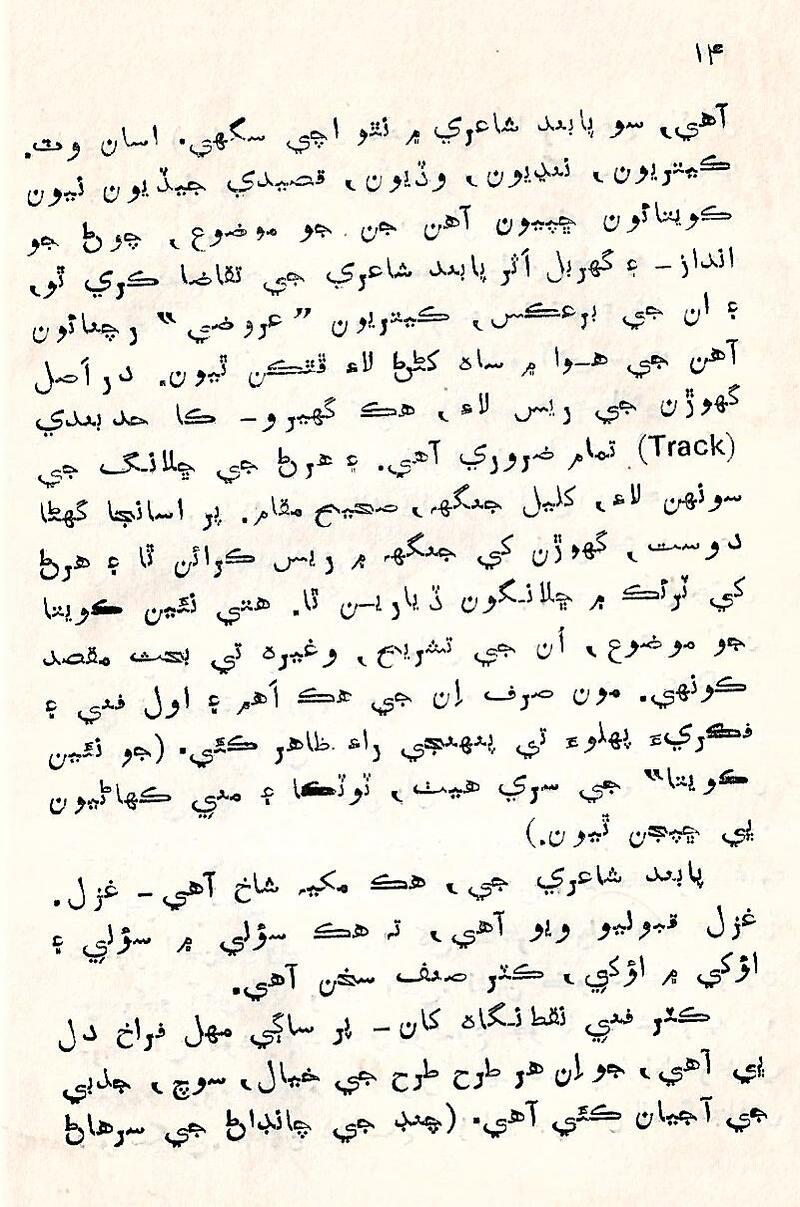 ۱۴
آهي، سو پابند شاعري ۾ نٿو اچي سگهي. اسان وٽ.
ڪيتريون، ننڍيون، وڏيون، قصيدي جيڏيون نيون
ڪويتائون ڇپيون آهن جن جو موضوع، چوڻ جو
انداز - ۽ گهربل اَثر پابند شاعري جي تقاضا ڪري ٿو،
۽ ان جي برعڪس، ڪيتريون ”عروضي“ رچنائون
آهن جي هوا ۾ ساه کڻڻ لاءِ ڦٿڪن ٿيون. در اَصل
گهوڙن جي ريس لاءِ، هڪ گهيرو - ڪا حد بندي
(Track) تمام ضروري آهي. ۽ هرڻ جي ڇلانگ جي
سونهن لاءِ، کليل جنگهہ، صحيح مقام. پر اسانجا گهڻا
دوست، گهوڙن کي جنگهہ ۾ ريس ڪرائن ٿا ۽ هرڻ
کي ٽرئڪ ۾ ڇلانگون ڏيارين ٿا. هتي نئين ڪويتا
جو موضوع، اُن جي تشريح، وغيره تي بحث مقصد
ڪونهي. مون صرف اِن جي هڪ اَهم ۽ اول فني ۽
فڪريءَ پهلوءَ تي پنهنجي راءِ ظاهر ڪئي. (جو نئين
ڪويتا“ جي سري هيٺ، ٽوٽڪا ۽ مني ڪهاڻيون
پي ڇپجن ٿيون.)
پابند شاعري جي، هڪ مکيہ شاخ آهي - غزل.
غزل قبوليو ويو آهي، تہ هڪ سؤلي ۾ سؤلي ۽
اؤکي ۾ اؤکي، ڪٽر صنف سخن آهي.
ڪٽر فني نقط نگاه کان - پر ساڳي مهل فراخ دل
پي آهي، جو اِن هر طرح طرح جي خيال، سوچ، جذبي
جي آجيان ڪئي آهي. (چنڊ جي چانڊاڻ جي سرهاڻ